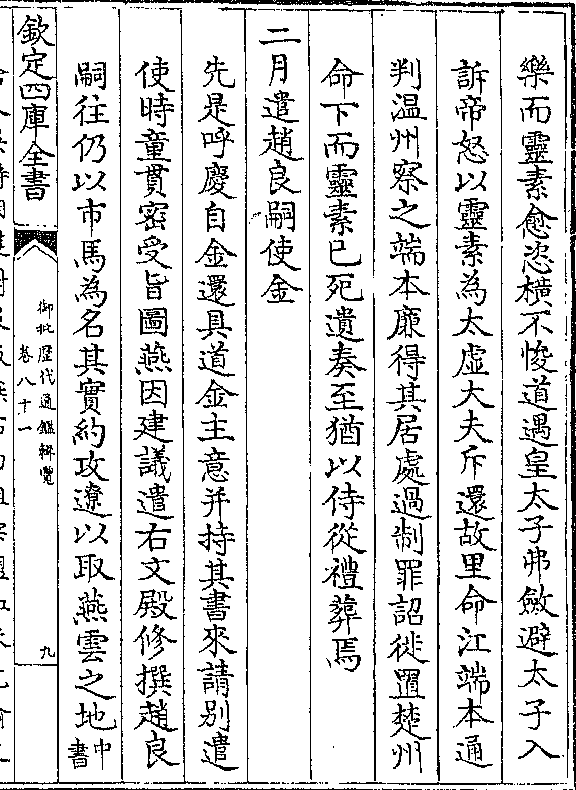 樂而靈素愈恣橫不悛道遇皇太子弗斂避太子入
訴帝怒以靈素為太虛大夫斥還故里命江端本通
判温州察之端本廉得其居處過制罪詔徙置楚州
命下而靈素已死遺奏至猶以侍從禮葬焉
二月遣趙良嗣使金
先是呼慶自金還具道金主意并持其書來請别遣
使時童貫密受旨圖燕因建議遣右文殿修撰趙良
嗣往仍以市馬為名其實約攻遼以取燕雲之地中書
欽定四庫全書
御批歷代通鑑輯覽
卷八十一
九